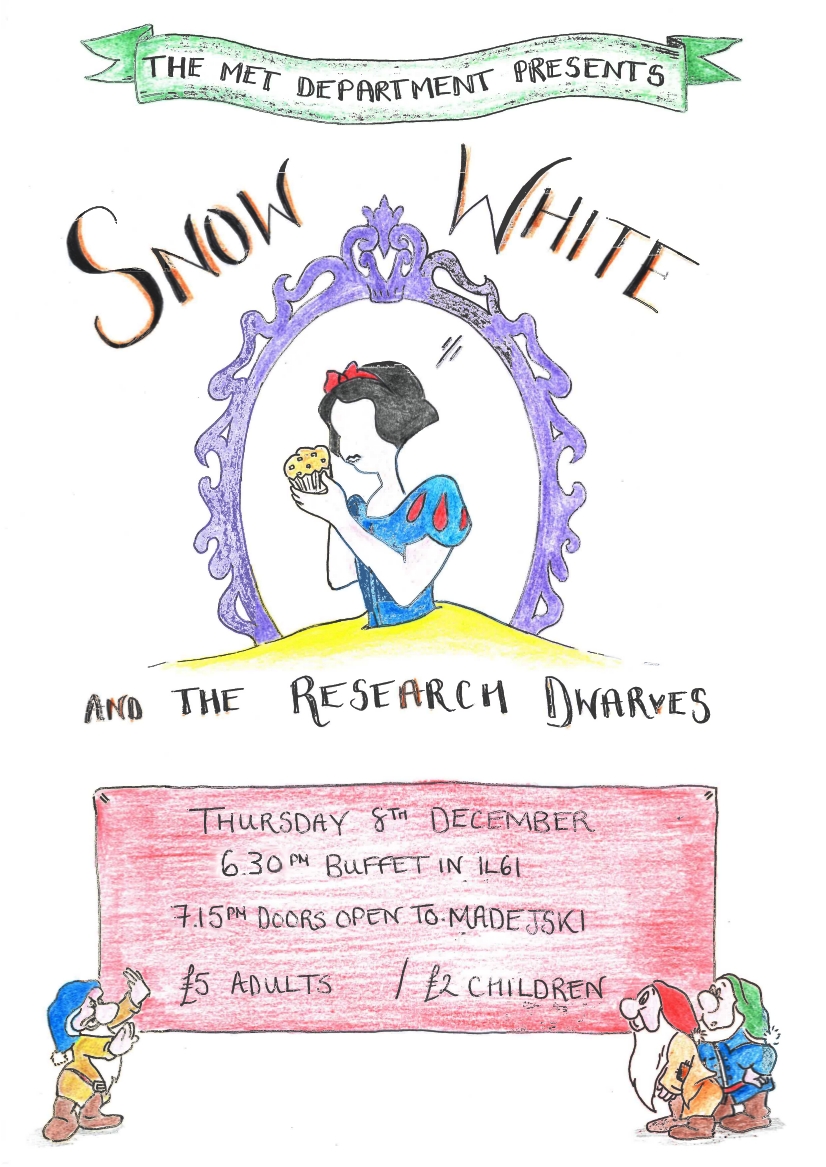 THE MET DEPARTMENT PRESENTS
SNOW WHITE
AND THE RESEARCH DWARVES
THURSDAY 8TH DECEMBER
6.30PM BUFFET IN 1L61
7.15PM DOORS OPEN TO MADEJSKI
£5 ADULTS / £2 CHILDREN